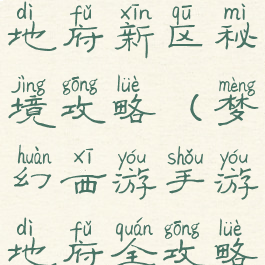 dì fǔ xīn qū mì
地府新区秘
jìng gōng lüè mèng
境攻略（梦
huàn xī yóu shǒu yóu
幻西游手游
dì fǔ quán gōng lüè
地府全攻略